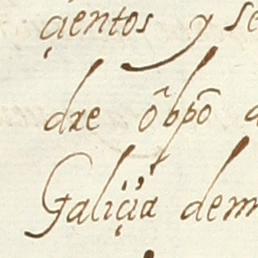 çientos y se
dre obpo
Galiçia dem